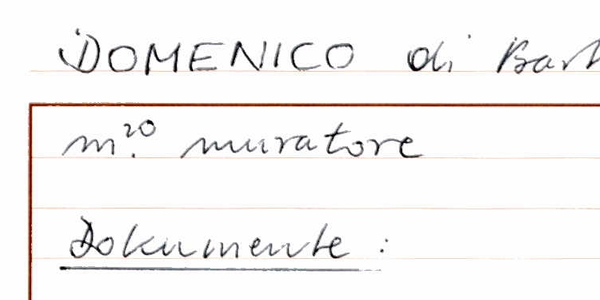 DOMENICO di Bart
m.ro muratore
Dokumente :